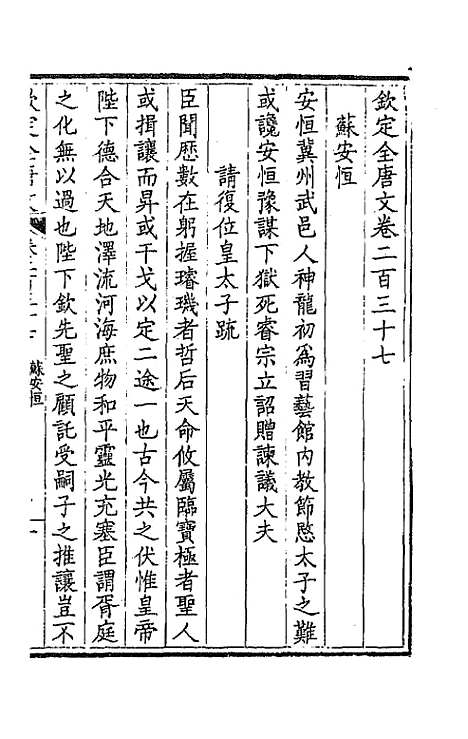 欽定全唐文卷二百三十七
蘇安恒
安恒冀州武邑人神龍初爲習藝館内教節愍太子之難
或讒安恒豫謀下獄死睿宗立詔贈諫議大夫
請復位皇太子疏
臣聞歴數在躬握璿璣者哲后天命攸屬臨寶極者聖人
或揖讓而昇或干戈以定二途一也古今共之伏惟皇帝
陛下德合天地澤流河海庶物和平靈光充塞臣謂胥庭
之化無以過也陛下欽先聖之顧託受嗣子之推讓豈不
蘇安恒
一